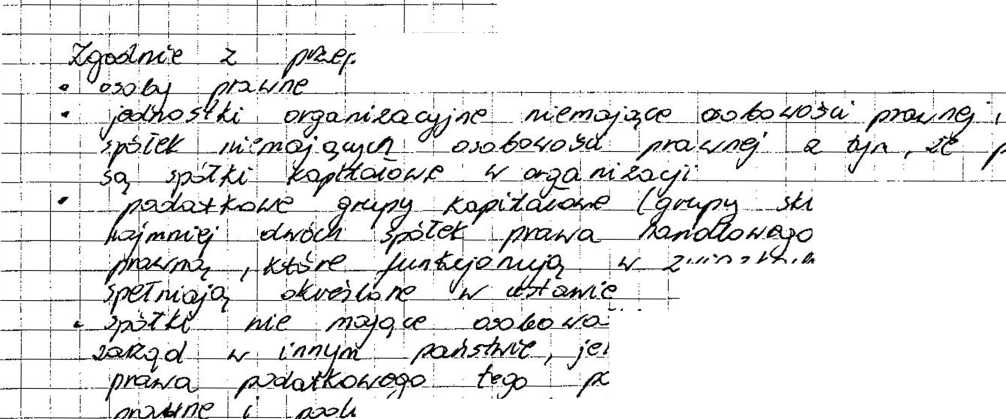 Zgodnie z
• osoby prawne
• jednostki organizacyjne niemające osobowości prawnej,
spółek niemających osobowości prawnej z tym, że
są spółki kapitałowe w organizacji
• podatkowe grupy kapitałowe (grupy
najmniej dwóch spółek prawa handlowego
prawną, które funkcjonują w
spełniają określone w ustawie
• spółki nie mające
zarząd w innym państwie,
prawa podatkowego tego
prawne i